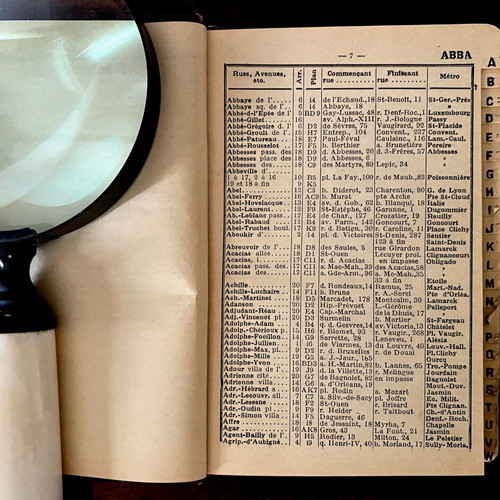 — 7 — ABBA
Rues, Avenues, etc. Arr. Plan Commençant rue Finissant rue Métro
Abbaye de l' 6 I4 de l'Echaud.,18 St-Benoît, 11 St-Ger.-Prés
Abbaye sq. de l' 6 I4 Abbaye, 18
Abbé-d-l'Epée de l' 5 Gay-Lussac, 48 r. Denf-Roc., Luxembourg
Abbé-Gillet 16 av. Alph.-XIII r. J.-Bologne Passy
Abbé-Grégoire d. l' 6 D2 de Sèvres, 75 Vaugirard, 92 St-Placide
Abbé-Groult de l' 15 H7 Entrep., 104 Convent., 237 Convent.
Abbé-Patureau 18 E7 Paul-Féval Caulainc., 116 Lam.-Caul.
Abbé-Rousselot 17 F5 b. Berthier a. Brunetière Pereire
Abbesses pass. des 18 D9 d. Abbesses, 20 d. 3-Frères, 57 Abbesses
Abbesses place des 18 D9 d. Abbesses, 6
Abbesses des 18 C9 des Martyrs, 89 Lepic, 34
Abbeville d'
1 à 17, 2 à 16 10 B5 pl. La Fay., 109 r. de Maub., 82 Poissonnière
19 et 18 à fin 9 K5
Abel 12 C3 b. Diderot, 23 Charenton, 90 G. de Lyon
Abel-Ferry 16 b. Murat te Arche Pte St-Cloud
Abel-Hovelacque 13 E4 av. d. Gob., 62 b. Blanqui, 18 Italie
Abel-Laurent 12 F9 St-Estèphe, 46 Garonne, 1 Dugommier
Ab.-Leblanc pass. 12 E4 de Char., 127 Crozatier, 19 Reuilly
Abel-Rabaud 11 B4 av. Parm., 142 Goncourt, 7 Goncourt
Abel-Truchet boul. 17 K9 r. d. Batign., 30 r. Caroline, 11 Place Clichy
Aboukir d' 2 I4 pl. d. Victoires St-Denis, 287 Sentier
123 à fin Saint-Denis
Abreuvoir de l' 18 D8 des Saules, 5 rue Girardon Lamarck
Acacias allée 18 D1 St-Ouen Lécuyer prol. Clignancourt
Acacias, i 17 G11 r. d. Acacias en impasse Obligado
Acacias pass. des 17 G11 a. Mac-Mah., 33 des Acacias, 58
Acacias des 17 G11 a. Gde-Arm., 36 a. Mc-Mah., 35
33 à fin Etoile
Achille 20 F7 d. Rondeaux, 14 Ramus, 25 Mart.-Nad.
Achille-Luchaire 14 F11 b. Brune r. A.-Sorel Pte d'Orléa.
Ach.-Martinet 18 D5 Marcadet, 178 Montcalm, 30 Lamarck
Adanson 20 F2 Hip.-Prévost L.-Gérôme Pelleport
Adjudant-Réau 20 E4 Cap.-Marchal de la Dhuis, 17
Adj.-Vincenot pl. 20 D3 Surmelin b. Mortier St-Fargeau
Adolphe-Adam 4 B4 q. d. Gesvres, 14 av. Victoria, 13 Châtelet
Adolp.-Chérioux p. 15 H6 r. Blomet, 93 r. Vaugir., 268 Pl. Vaugir.
Adolphe-Focillon 14 G9 Sarrette, 28 Leneveu, 1 Alésia
Adolphe-Jullien 1 I6 de Viarmes, 13 du Louvre, 40 Louv.-Hall.
Adolphe-Max, pl. 9 I2 r. d. Bruxelles r. de Douai Pl. Clichy
Adolphe-Mille 19 G5 a. J.-Jaur., 185 Ourcq
Adolphe-Yvon 16 BD3 a. H.-Martin, 82 b. Lannes, 65 Tro.-Pompe
Adour villa de l' 19 J9 d. la Villette, 13 r. Melingue, 82 Jourdain
Adrienne cité 20 G7 de Bagnolet, 82 en impasse Bagnolet
Adrienne villa 14 G6 a. d'Orléans, 19 Mout.-Duv.
Adr.-Hébrard a. 16 AK7 pl. Rodin a. Mozart Jasmin
Adr.-Lecouvr. all. 7 C7 a. Silv.-de-Sacy pl. Joffre Ec. Milit.
Adr.-Lesesne 18 F2 St-Ouen r. Brisard Pte Clignan.
Adr.-Oudin pl. 9 F9 r. Helder r. Taitbout Ch.-d'Antin
Adr.-Simon villa 14 F5 Daguerre, 46 Denf.-Roch.
Affre 18 I8 de Jessaint, 18 Myrha, 7 Chapelle
Agar 16 AK8 Gros, 43 La Font., 21 Jasmin
Agent-Bailly de l' 9 H5 Rodier, 13 Milton, 24 Le Peletier
Agrip.-d'Aubigné 4 I9 q. Henri-IV, 40 b. Morland, 17 Sully-Morla.
A
B
C
D
E
F
G
H
I
J
K
L
M
N
O
P
Q
R
S
T
U
V
W